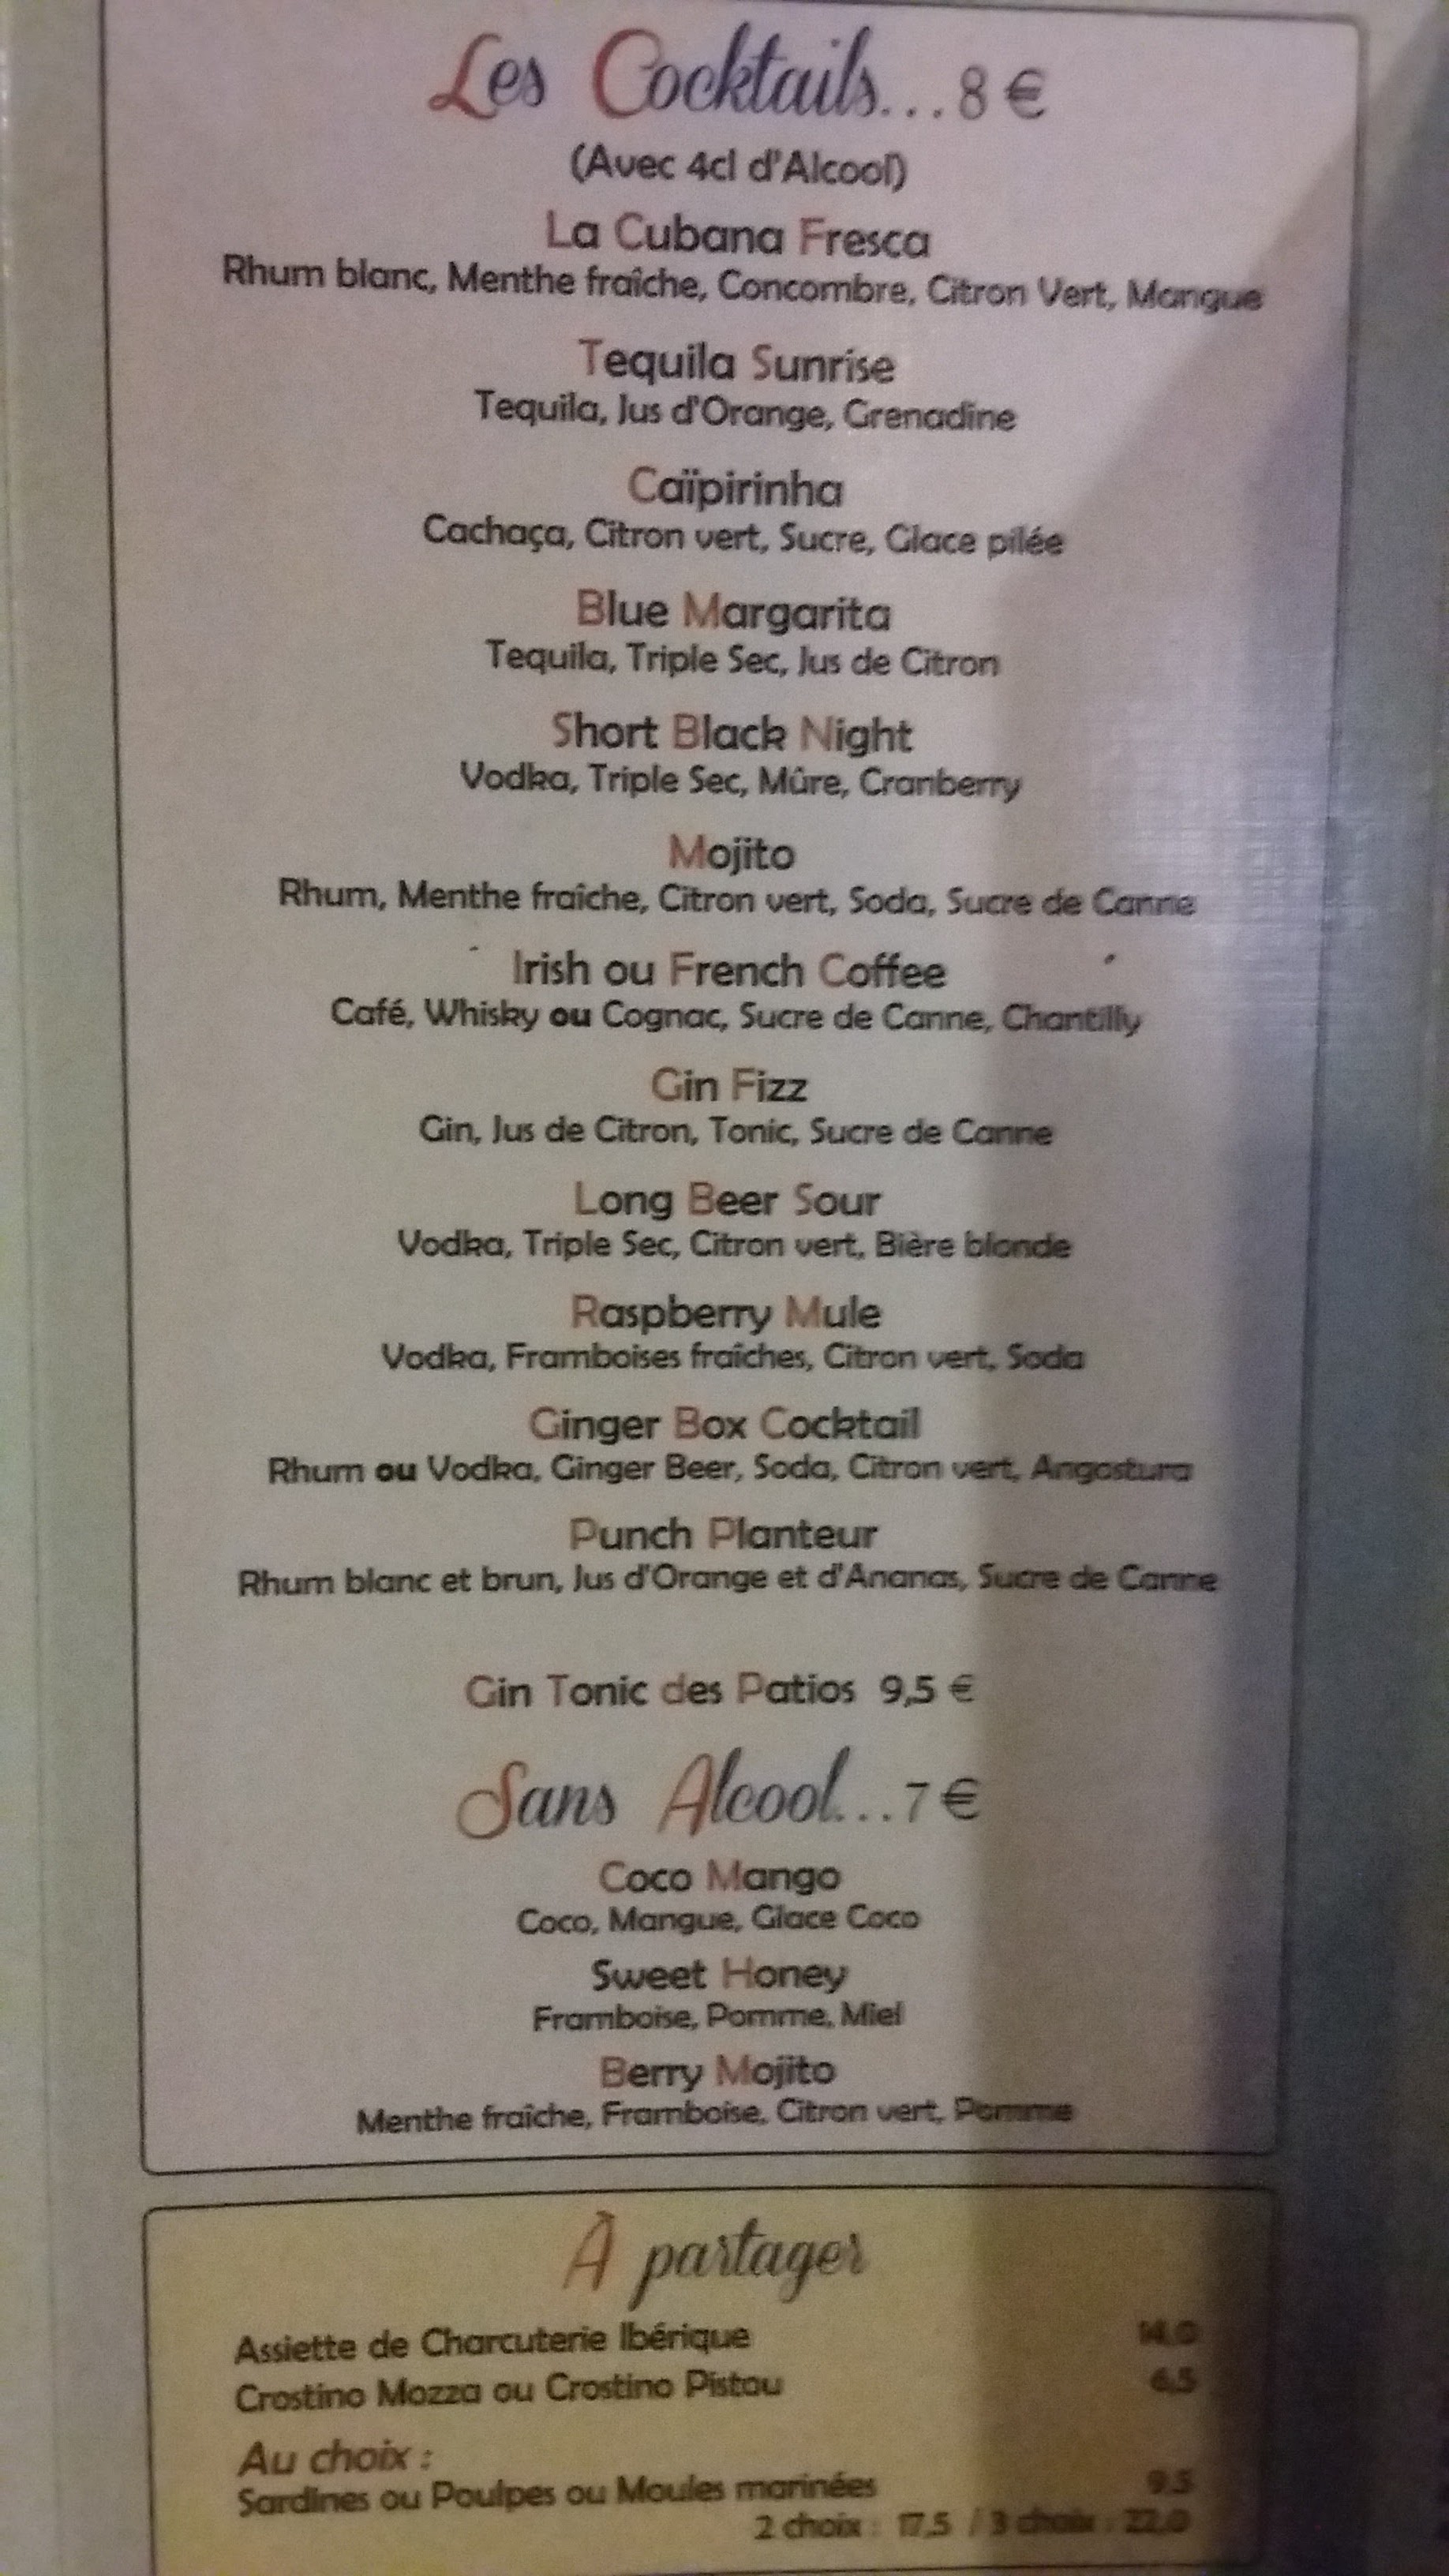 Les Cocktails...8 €
(Avec 4cl d'Alcool)
La Cubana Fresca
Rhum blanc, Menthe fraîche, Concombre, Citron Vert, Mangue
Tequila Sunrise
Tequila, Jus d'Orange, Grenadine
Caïpirinha
Cachaça, Citron vert, Sucre, Glace pilée
Blue Margarita
Tequila, Triple Sec, Jus de Citron
Short Black Night
Vodka, Triple Sec, Mûre, Cranberry
Mojito
Rhum, Menthe fraîche, Citron vert, Soda, Sucre de Canne
Irish ou French Coffee
Café, Whisky ou Cognac, Sucre de Canne, Chantilly
Gin Fizz
Gin, Jus de Citron, Tonic, Sucre de Canne
Long Beer Sour
Vodka, Triple Sec, Citron vert, Bière blonde
Raspberry Mule
Vodka, Framboises fraîches, Citron vert, Soda
Ginger Box Cocktail
Rhum ou Vodka, Ginger Beer, Soda, Citron vert, Angostura
Punch Planteur
Rhum blanc et brun, Jus d'Orange et d'Ananas, Sucre de Canne
Gin Tonic des Patios 9,5 €
Sans Alcool...7 €
Coco Mango
Coco, Mangue, Glace Coco
Sweet Honey
Framboise, Pomme, Miel
Berry Mojito
Menthe fraîche, Framboise, Citron vert, Pomme
À partager
Assiette de Charcuterie Ibérique 14,0
Crostino Mozza ou Crostino Pistou 6,5
Au choix :
Sardines ou Poulpes ou Moules marinées 9,5
2 choix : 17,5 / 3 choix : 22,0